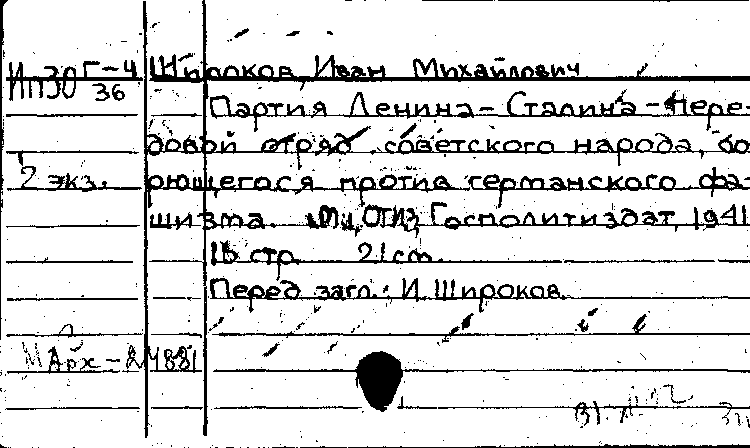 Г-4 Широков, Иван Михайлович
36
Партия Ленина-Сталина - пере-
довой отряд советского народа, бо
2 экз. рющегося против германского фа-
шизма. М., ОГИЗ, Госполитиздат, 1941
16 стр. 21 cm.
Перед загл.: И. Широков.